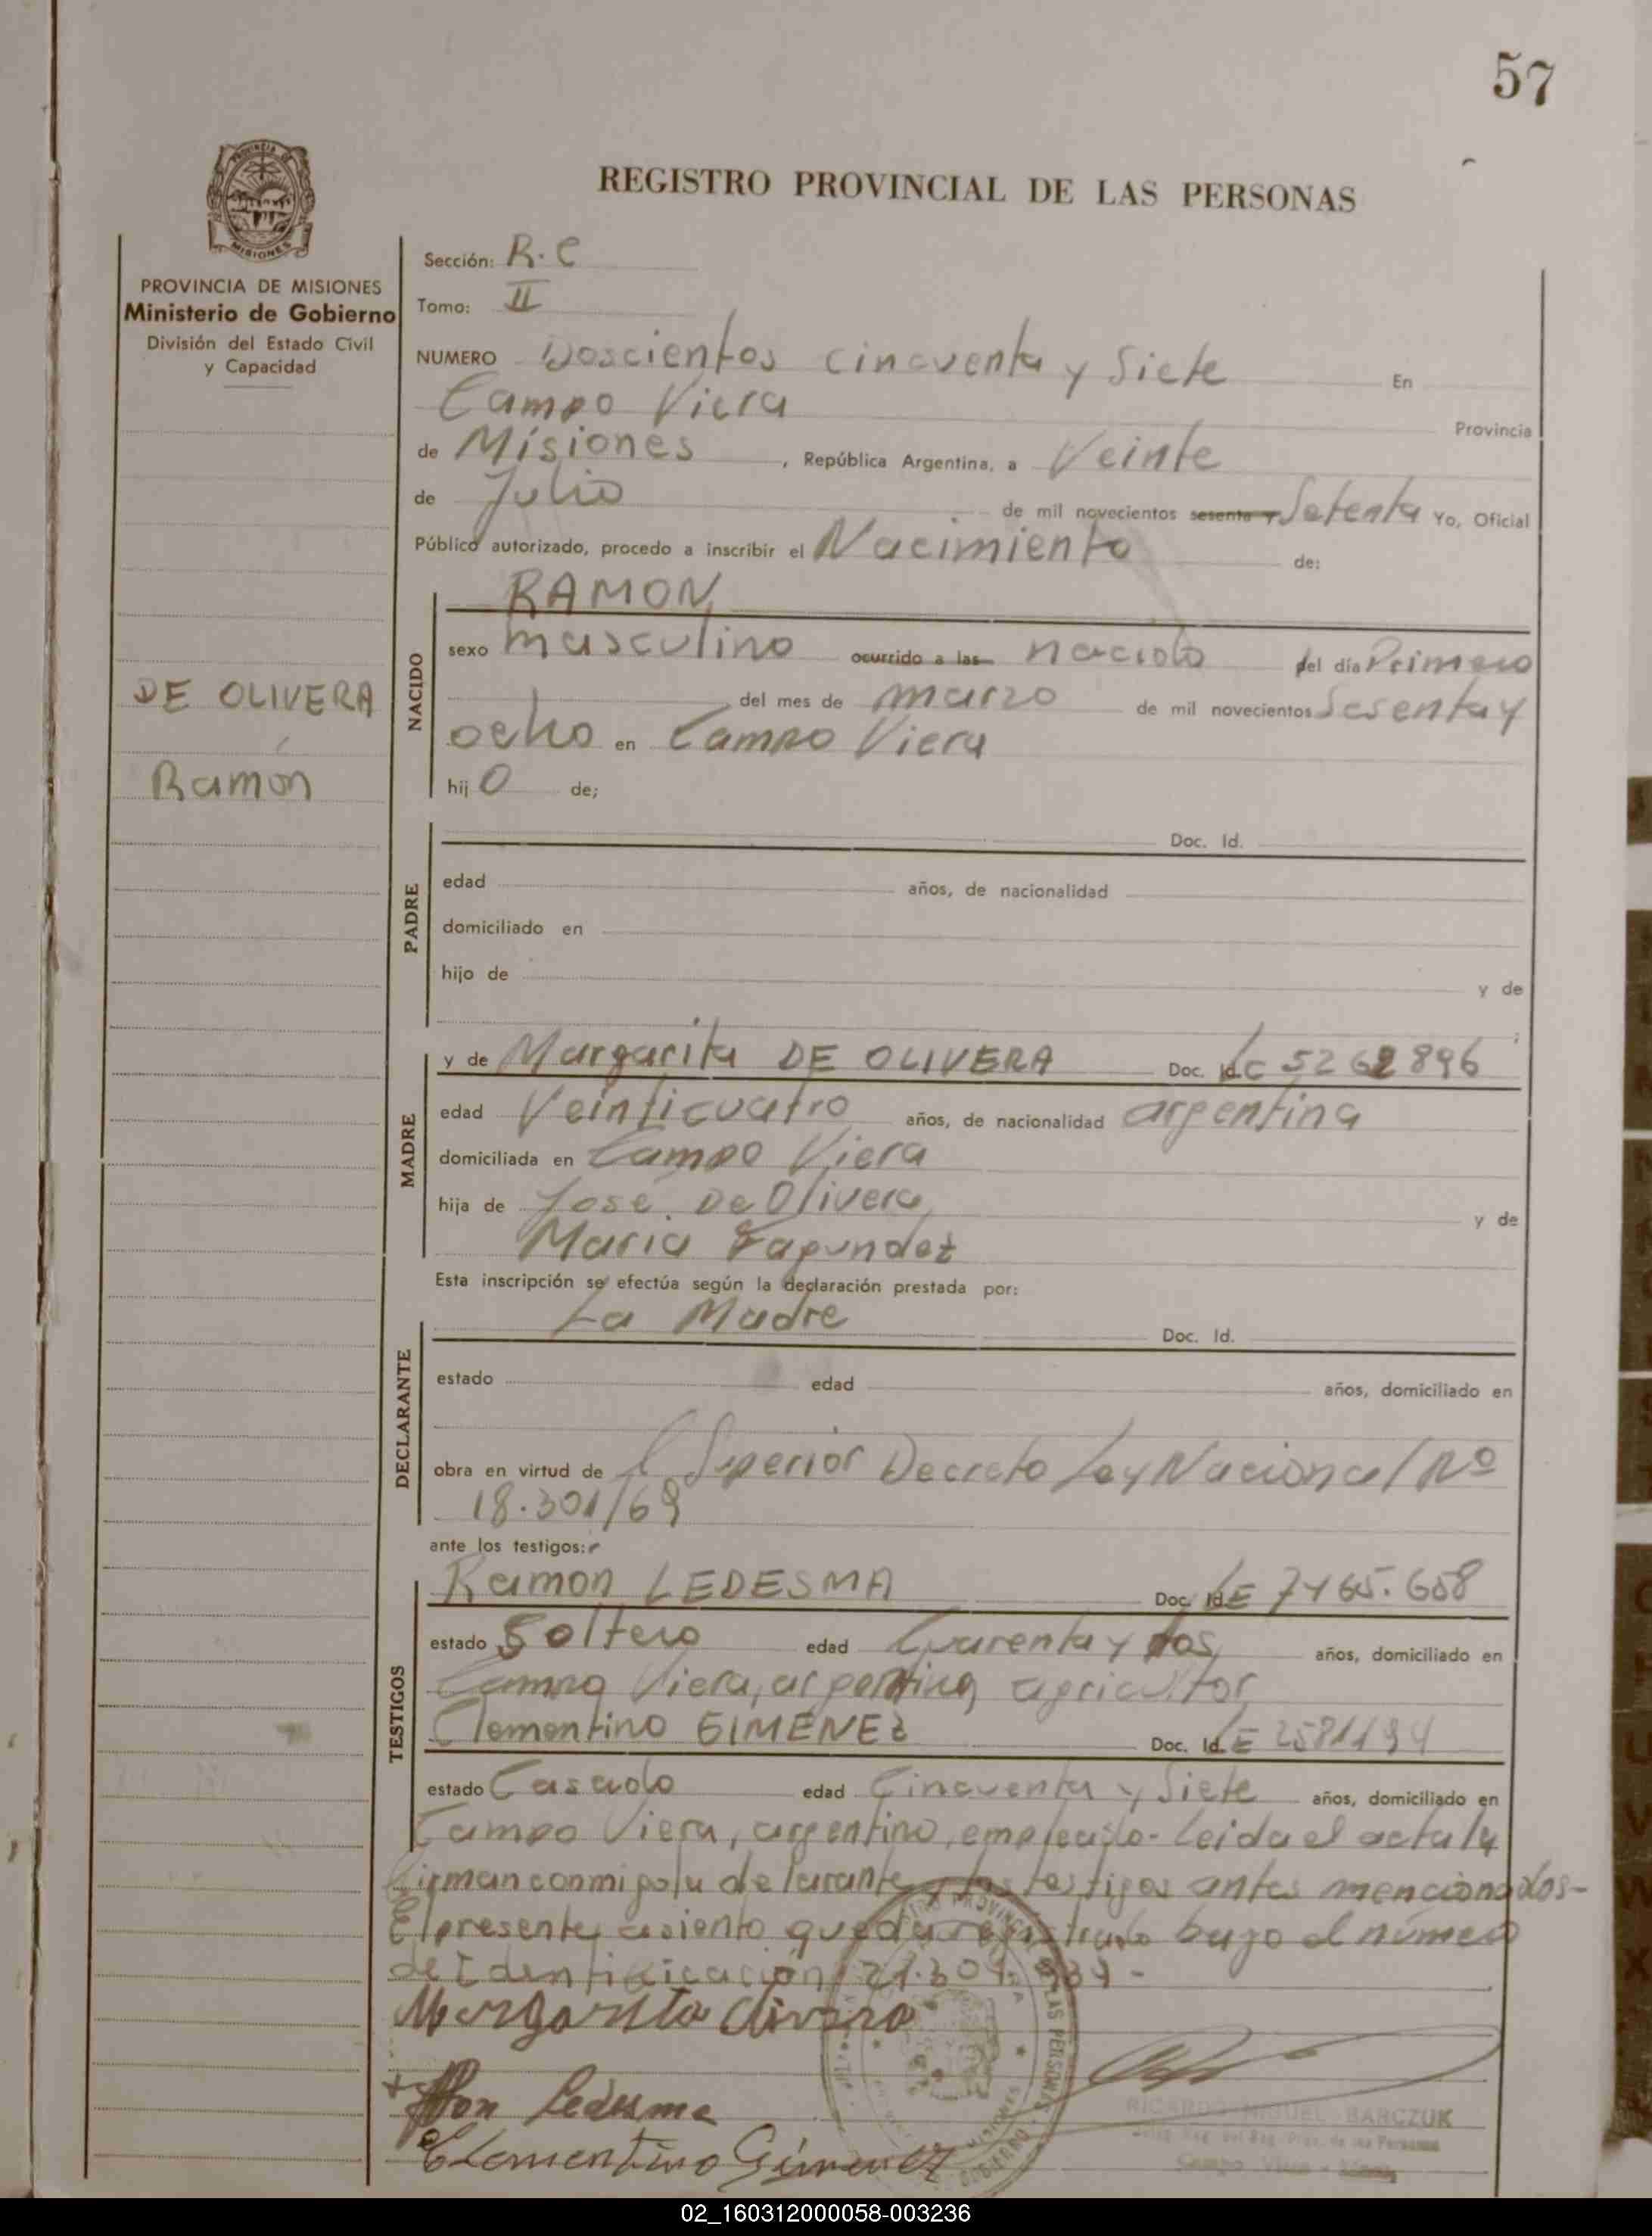 57
REGISTRO PROVINCIAL DE LAS PERSONAS
MISIONES
PROVINCIA DE MISIONES
Ministerio de Gobierno
División del Estado Civil
y Capacidad
DE OLIVERA
Ramón
Sección: R.C
Tomo: II
NUMERO Doscientos cincuenta y Siete En
Campo Viera Provincia
de Misiones, República Argentina, a Veinte
de Julio de mil novecientos sesenta y Setenta Yo, Oficial
Público autorizado, procedo a inscribir el Nacimiento de:
NACIDO
RAMON
sexo masculino ocurrido a las nacido del día Primero
del mes de marzo de mil novecientos Sesenta y
ocho en Campo Viera
hij O de;
PADRE
Doc. Id.
edad años, de nacionalidad
domiciliado en
hijo de y de
MADRE
y de Margarita DE OLIVERA Doc. Id. LC 5262896
edad Veinticuatro años, de nacionalidad argentina
domiciliada en Campo Viera
hija de José De Olivera y de
Maria Fagundez
Esta inscripción se efectúa según la declaración prestada por:
DECLARANTE
La Madre Doc. Id.
estado edad años, domiciliado en
obra en virtud de l Superior Decreto Ley Nacional Nº
18.301/69
ante los testigos:
TESTIGOS
Ramon LEDESMA Doc. Id. LE 7465.608
estado Soltero edad Cuarenta y dos, años, domiciliado en
Campo Viera, argentino, agricultor
Clementino GIMENEZ Doc. Id. LE 2581194
estado Casado edad Cincuenta y Siete años, domiciliado en
Campo Viera, argentino, empleado- Leida el acta la
firman conmigo la delarante y los testigos antes mencionados-
El presente asiento queda registrado bajo el número
de Identificación 21.301.
Margarita olivera
Ledesma
Clementino Gimenez
RICARDO MIGUEL BARCZUK
02_160312000058-003236